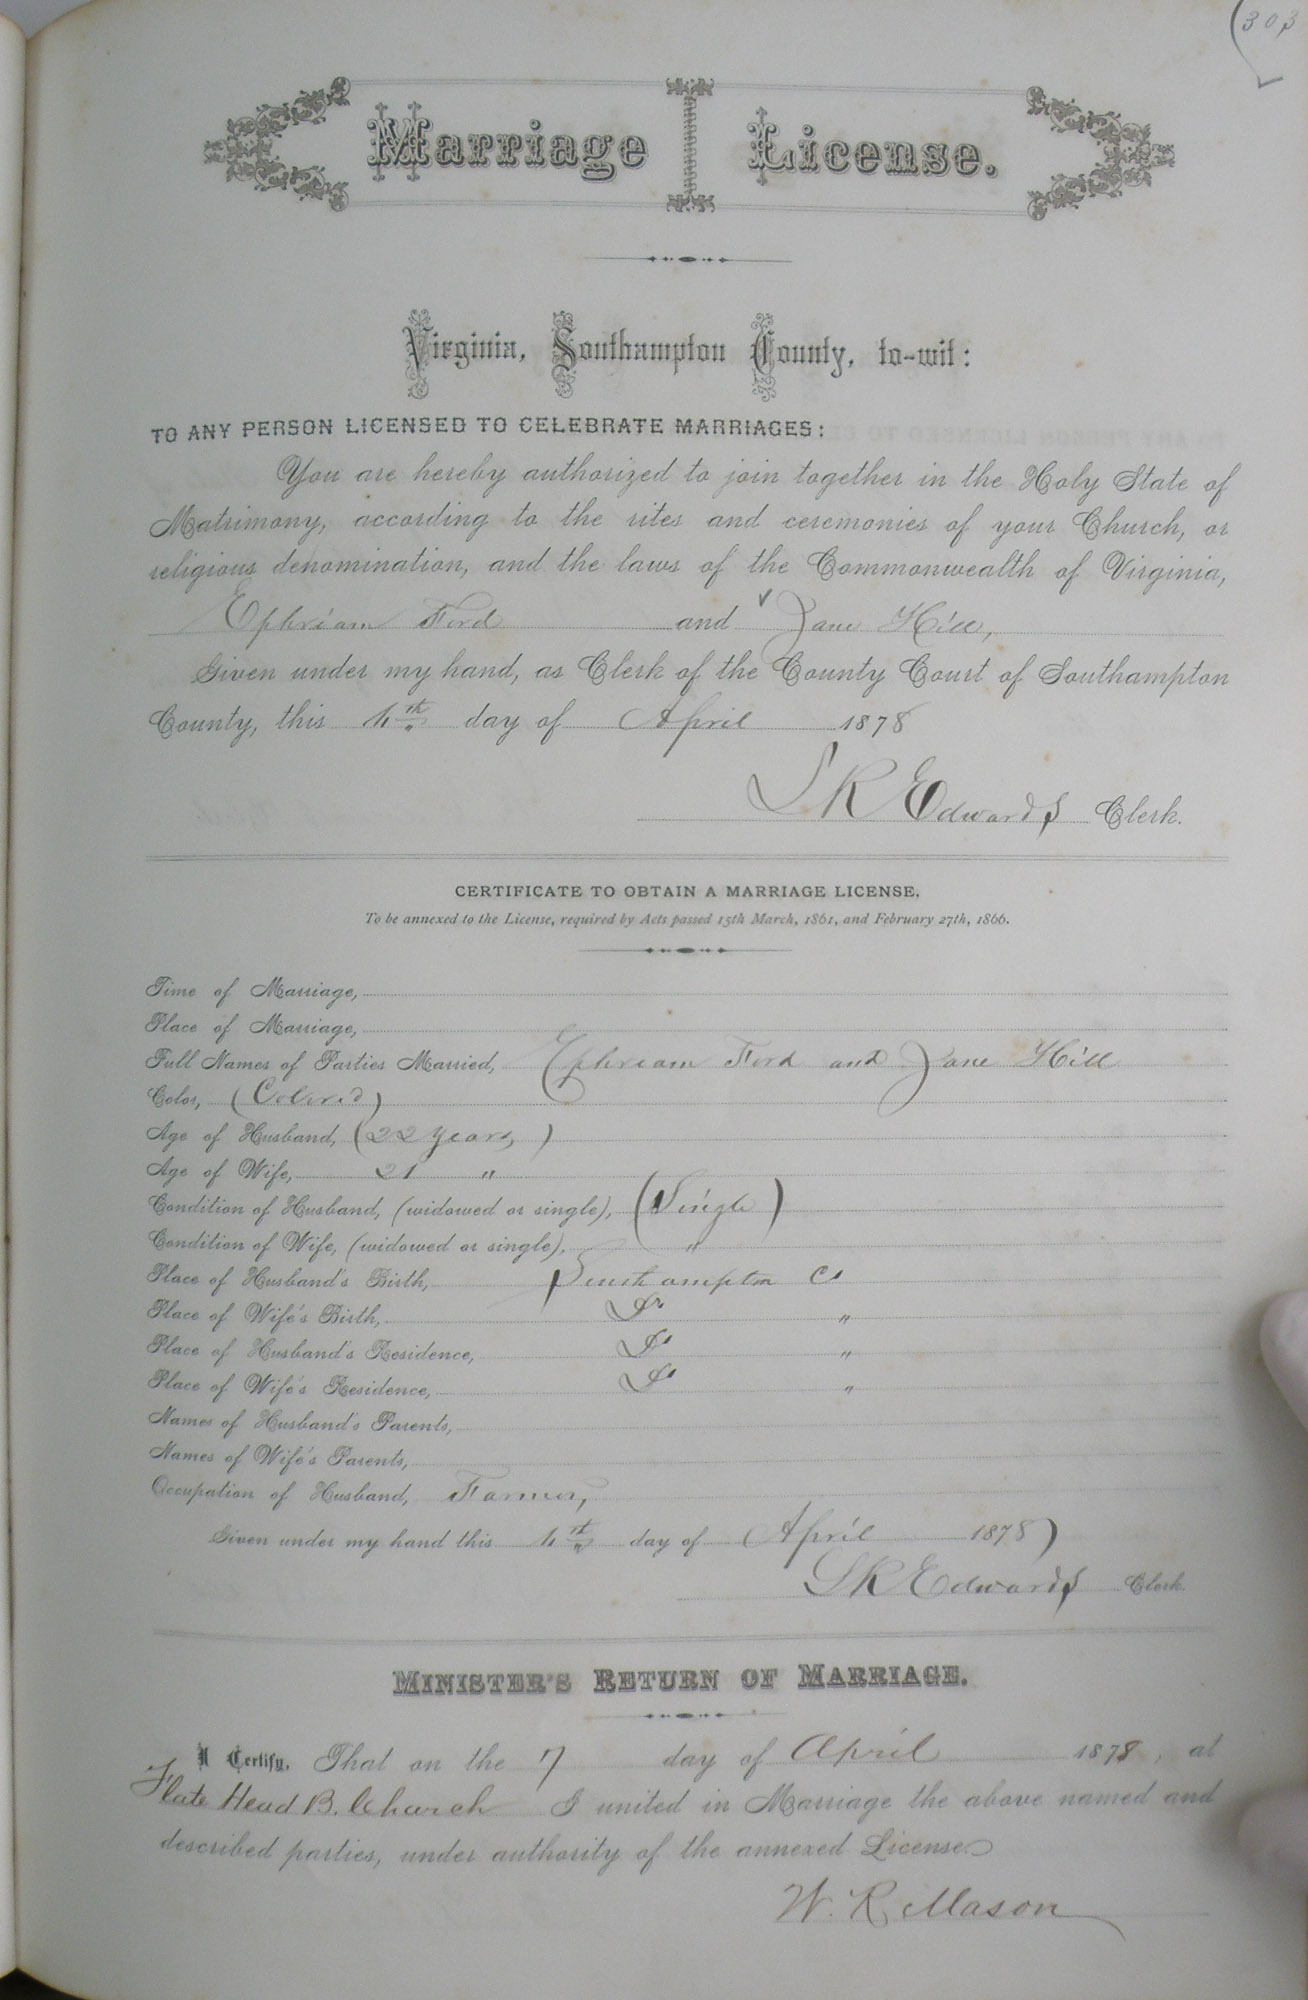 (303
Marriage License.
Virginia, Southampton County, to-wit:
TO ANY PERSON LICENSED TO CELEBRATE MARRIAGES:
You are hereby authorized to join together in the Holy State of
Matrimony, according to the rites and ceremonies of your Church, or
religious denomination, and the laws of the Commonwealth of Virginia,
Ephriam Ford and ✓ Jane Hill,
Given under my hand, as Clerk of the County Court of Southampton
County, this 4th day of April 1878
L R Edwards Clerk.
CERTIFICATE TO OBTAIN A MARRIAGE LICENSE.
To be annexed to the License, required by Acts passed 15th March, 1861, and February 27th, 1866.
Time of Marriage,
Place of Marriage,
Full Names of Parties Married, Ephriam Ford and Jane Hill
Color, (Colored)
Age of Husband, (22 years)
Age of Wife, 21 "
Condition of Husband, (widowed or single), (Single)
Condition of Wife, (widowed or single), "
Place of Husband's Birth, Southampton Co
Place of Wife's Birth, Do "
Place of Husband's Residence, Do "
Place of Wife's Residence, Do "
Names of Husband's Parents,
Names of Wife's Parents,
Occupation of Husband, Farmer,
Given under my hand this 4th day of April 1878)
L R Edwards Clerk.
MINISTER'S RETURN OF MARRIAGE.
I Certify, That on the 7 day of April 1878, at
Flate Head B. Church I united in Marriage the above named and
described parties, under authority of the annexed License.
W. R. Mason